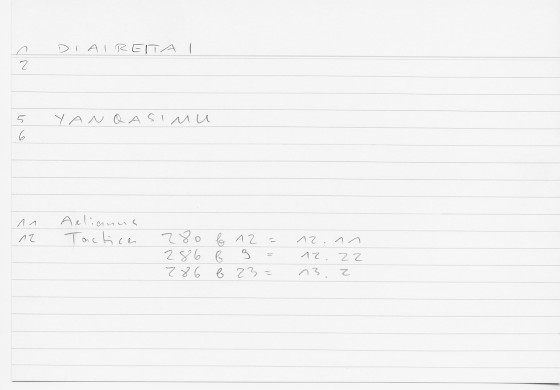 1 DIAIRETAI
2
5 YANQASIMU
6
11 Aelianus
12 Tactica 280 b 12 = 12.11
286 b 9 = 12.22
286 b 23 = 13.2